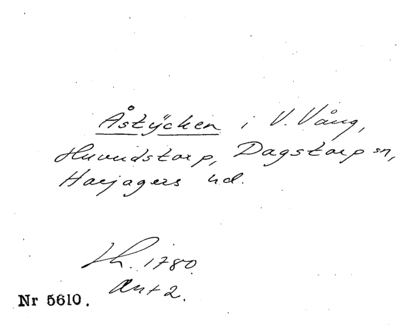 Åstycken i V. Vång,
Huvudstorp, Dagstorp sn,
Harjagers hd.
Lh. 1780.
Akt 2.
Nr 5610.